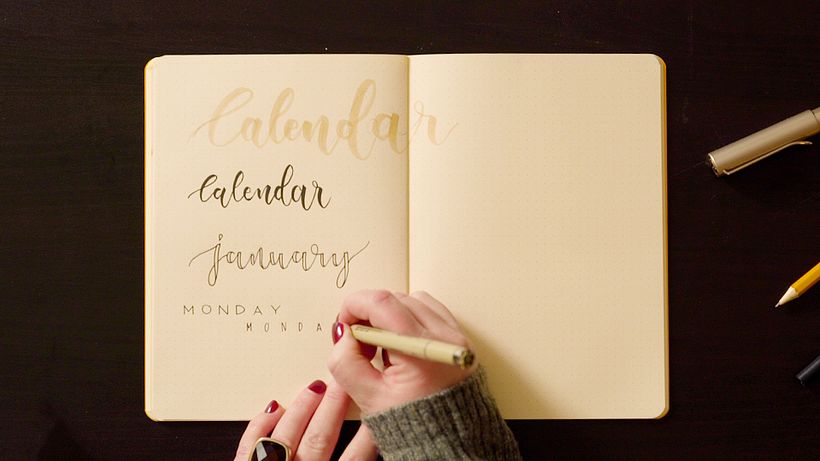 Calendar
Calendar
january
MONDAY
MONDA